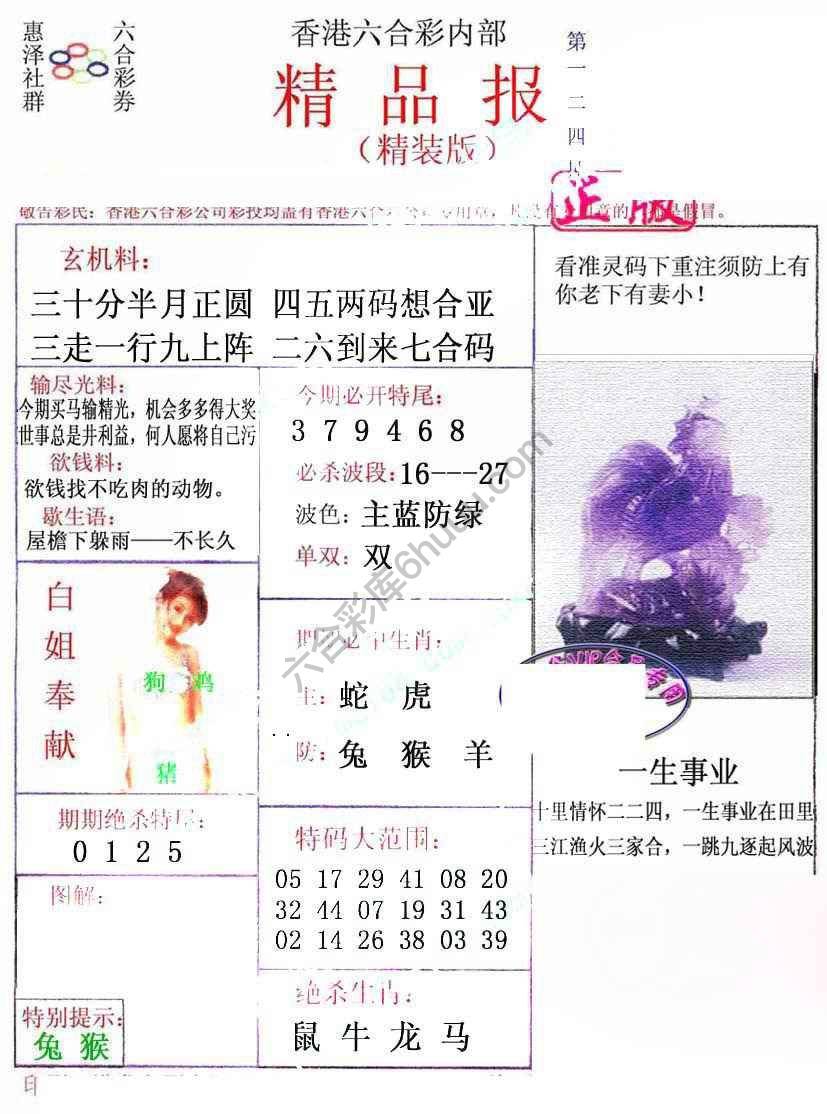 惠泽社群
六合彩券
香港六合彩内部
第一二四
精品报
（精装版）
正版
敬告彩民：香港六合彩公司彩投均盖有香港六合
假冒。
玄机料：
三十分半月正圆 四五两码想合亚
三走一行九上阵 二六到来七合码
看准灵码下重注须防上有
你老下有妻小！
输尽光料：
今期买马输精光，机会多多得大奖
世事总是井利益，何人愿将自己污
欲钱料：
欲钱找不吃肉的动物。
歇生语：
屋檐下躲雨——不长久
今期必开特尾：
3 7 9 4 6 8
必杀波段：16---27
波色：主蓝防绿
单双：双
白姐奉献
狗 鸡
猪
期期必中生肖：
主：蛇 虎
防：兔 猴 羊
期期绝杀特尾：
0 1 2 5
特码大范围：
05 17 29 41 08 20
32 44 07 19 31 43
02 14 26 38 03 39
一生事业
十里情怀二二四，一生事业在田里
三江渔火三家合，一跳九逐起风波
图解：
特别提示：
兔 猴
绝杀生肖：
鼠 牛 龙 马
六合彩库6huu.com